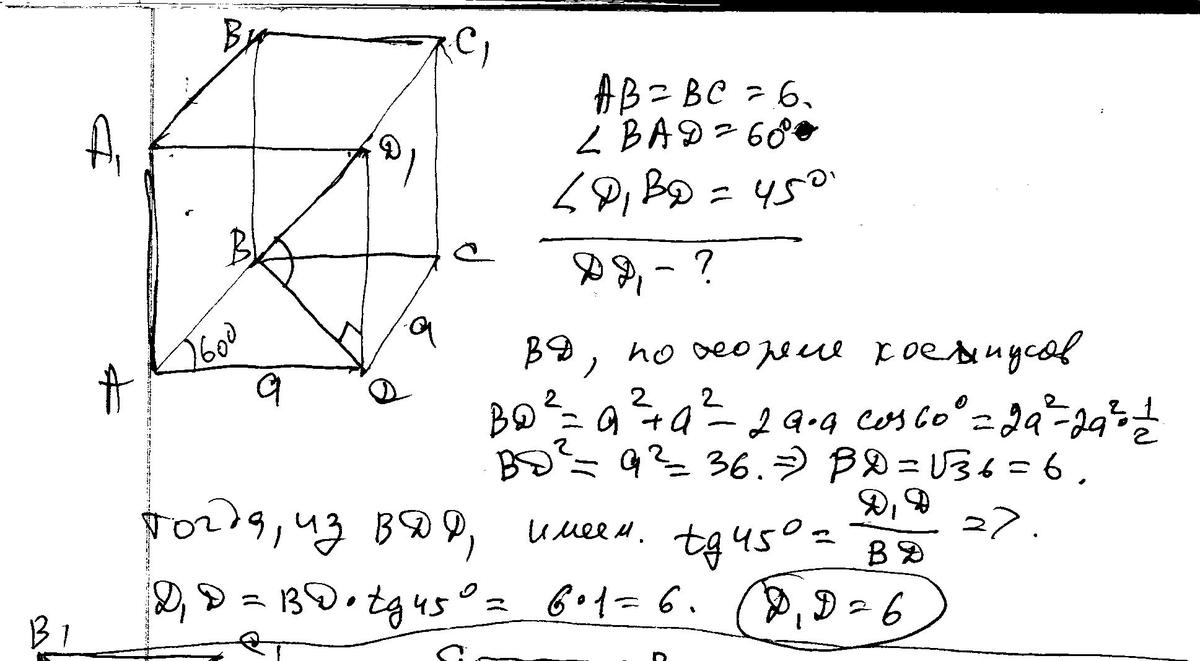 B₁
C₁
A₁
D₁
B
C
60°
a
A
a
D
AB = BC = 6.
∠ BAD = 60°
∠ D₁BD = 45°
DD₁ - ?
BD, по теореме косинусов
BD² = a² + a² - 2a·a cos60° = 2a² - 2a²·1/2
BD² = a² = 36. ⇒ BD = √36 = 6.
тогда, из BDD₁ имеем. tg45° = D₁D/BD =>.
D₁D = BD·tg45° = 6·1 = 6. D₁D = 6
B₁